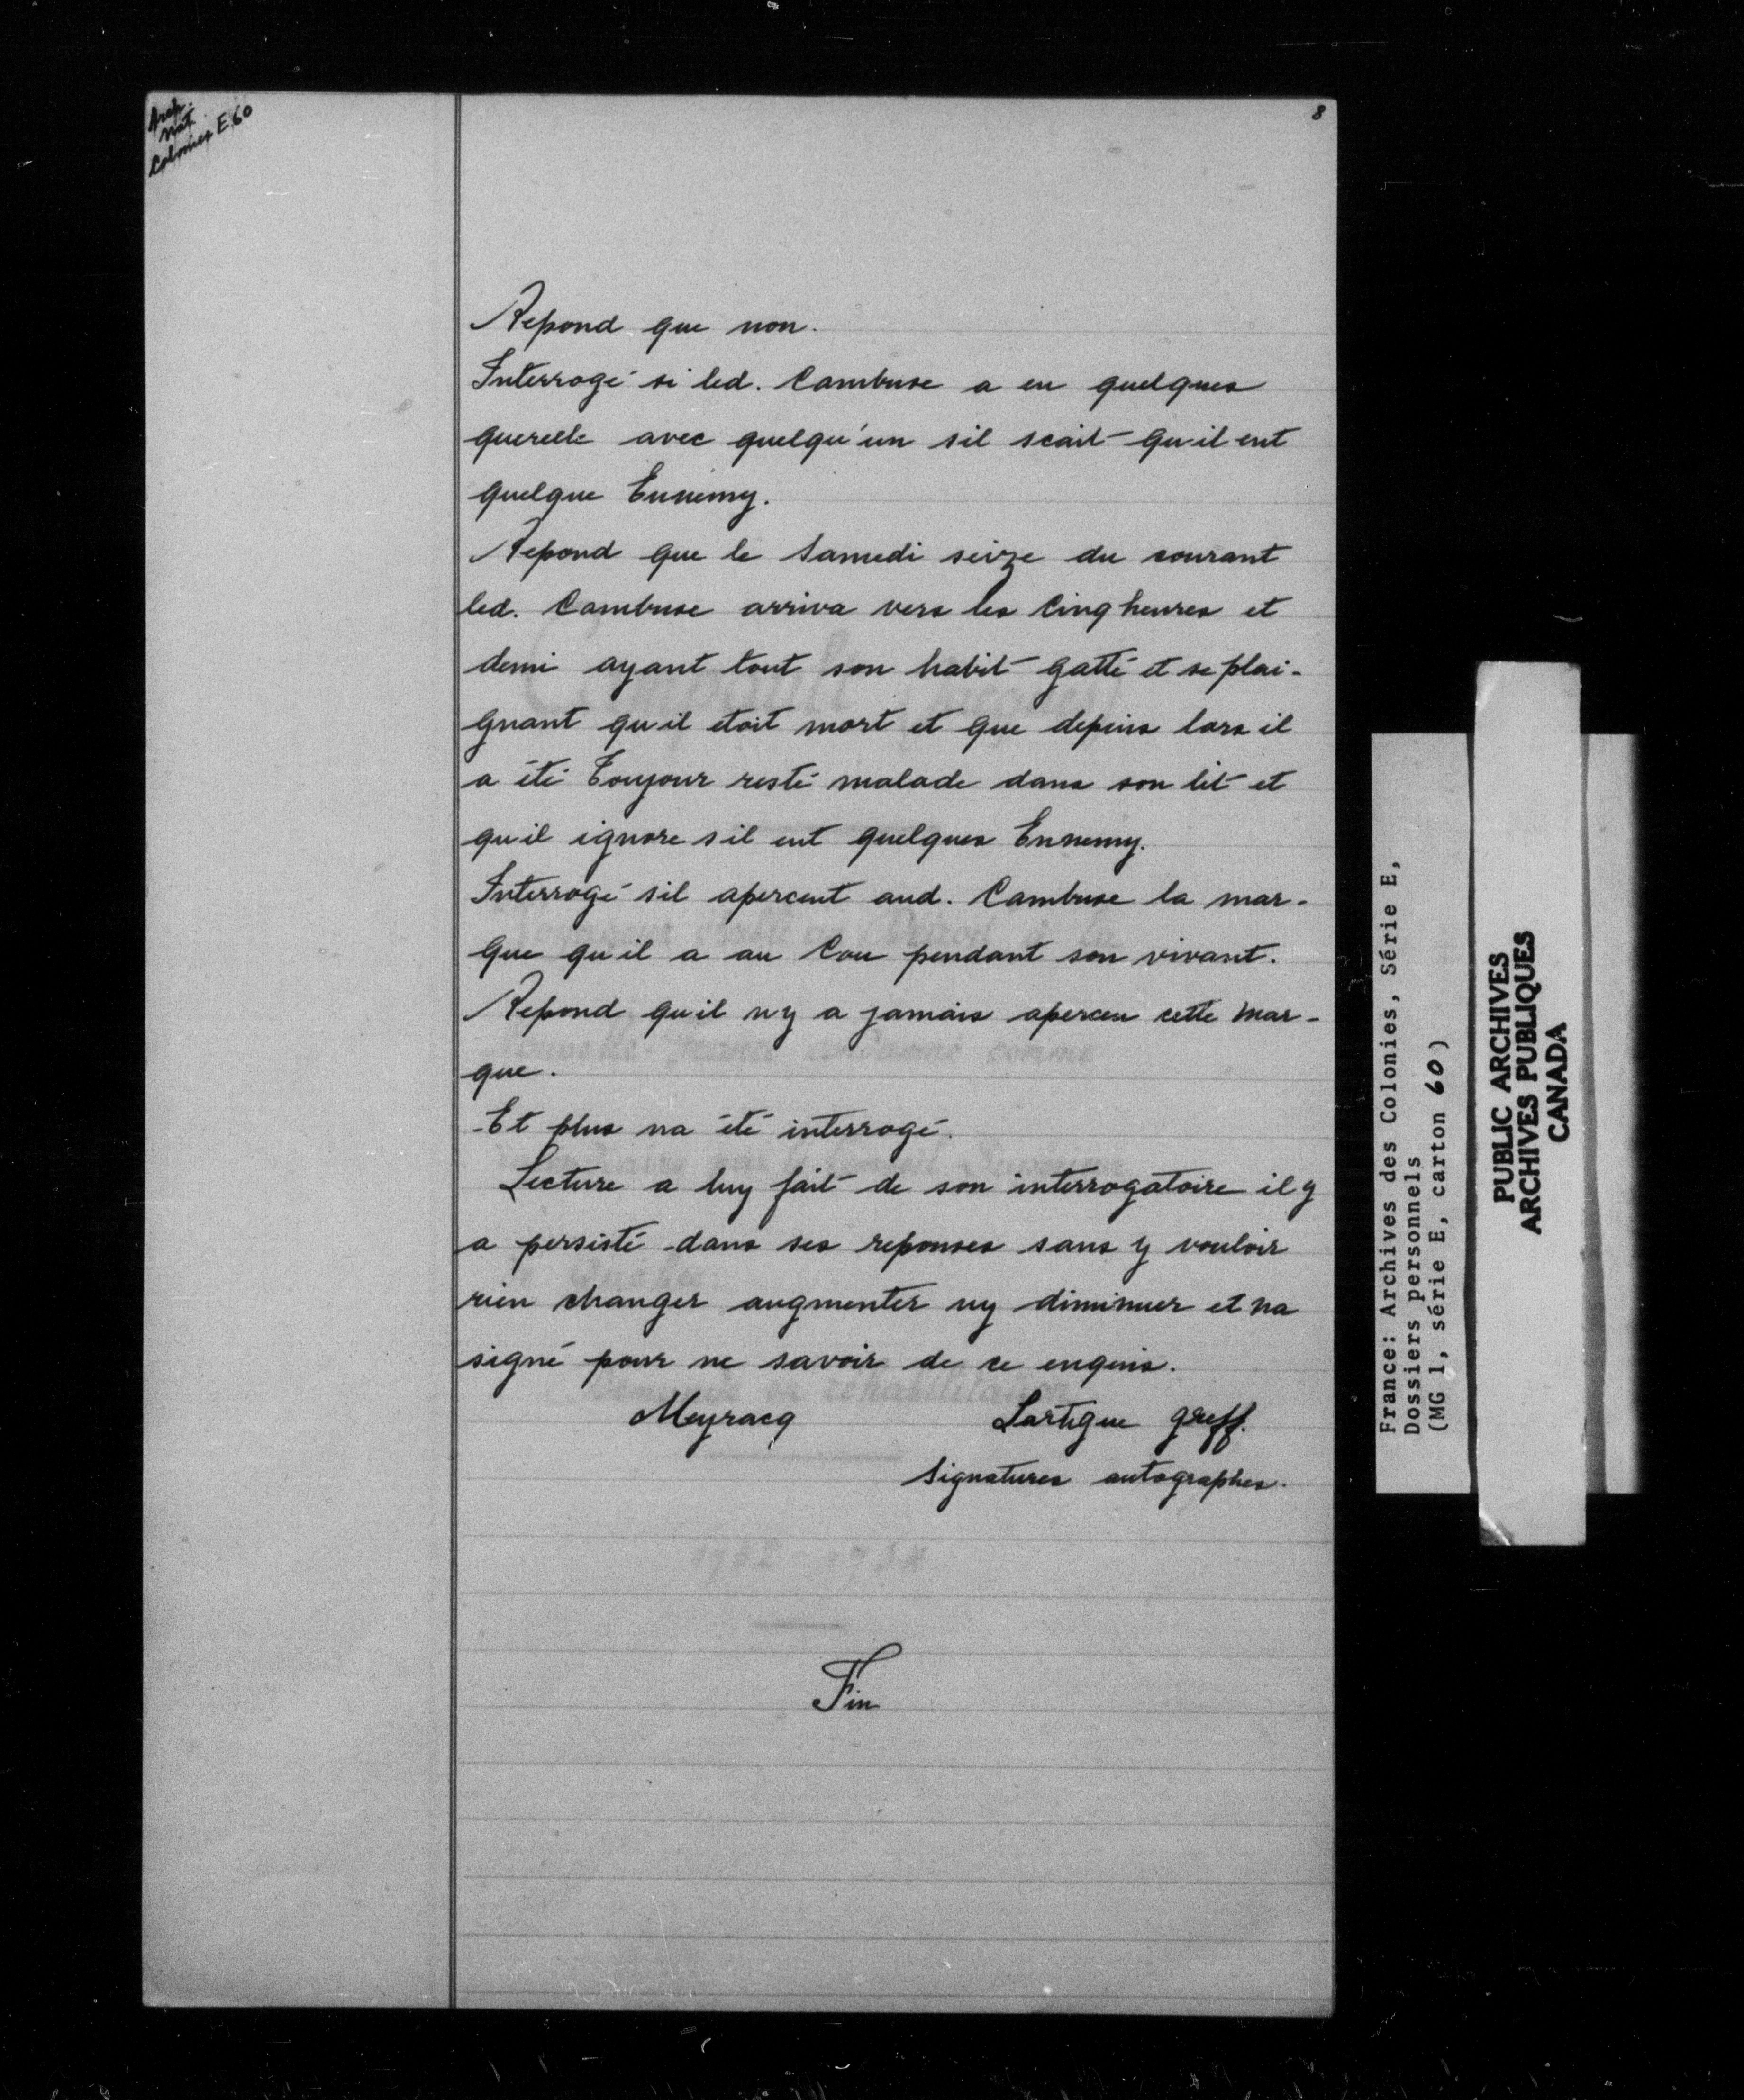 Arch.
Nat.
Colonies E 60
8
Repond que non.
Interrogé si led. Cambuse a eu quelques
querelle avec quelqu'un sil scait qu-il eut
quelque Ennemy.
Repond que le Samedi seize du courant
led. Cambuse arriva vers les cinq heures et
demi ayant tout son habit gatté et se plai-
gnant qu-il etoit mort et que depuis lors il
a été toujour resté malade dans son lit et
qu-il ignore s il eut quelques Ennemy.
Interrogé s'il apercent aud. Cambuse la mar-
que qu-il a au Cou pendant son vivant.
Repond qu-il n y a jamais aperceu cette mar-
que.
Et plus na été interrogé.
Lecture a luy fait de son interrogatoire il y
a persisté dans ses reponses sans y vouloir
rien changer augmenter ny diminuer et na
signé pour ne savoir de ce enquis.
Meyracq Lartigue greff.
Signatures autographes.
Fin
France: Archives des Colonies, Série E,
Dossiers personnels
(MG 1, série E, carton 60)
PUBLIC ARCHIVES
ARCHIVES PUBLIQUES
CANADA